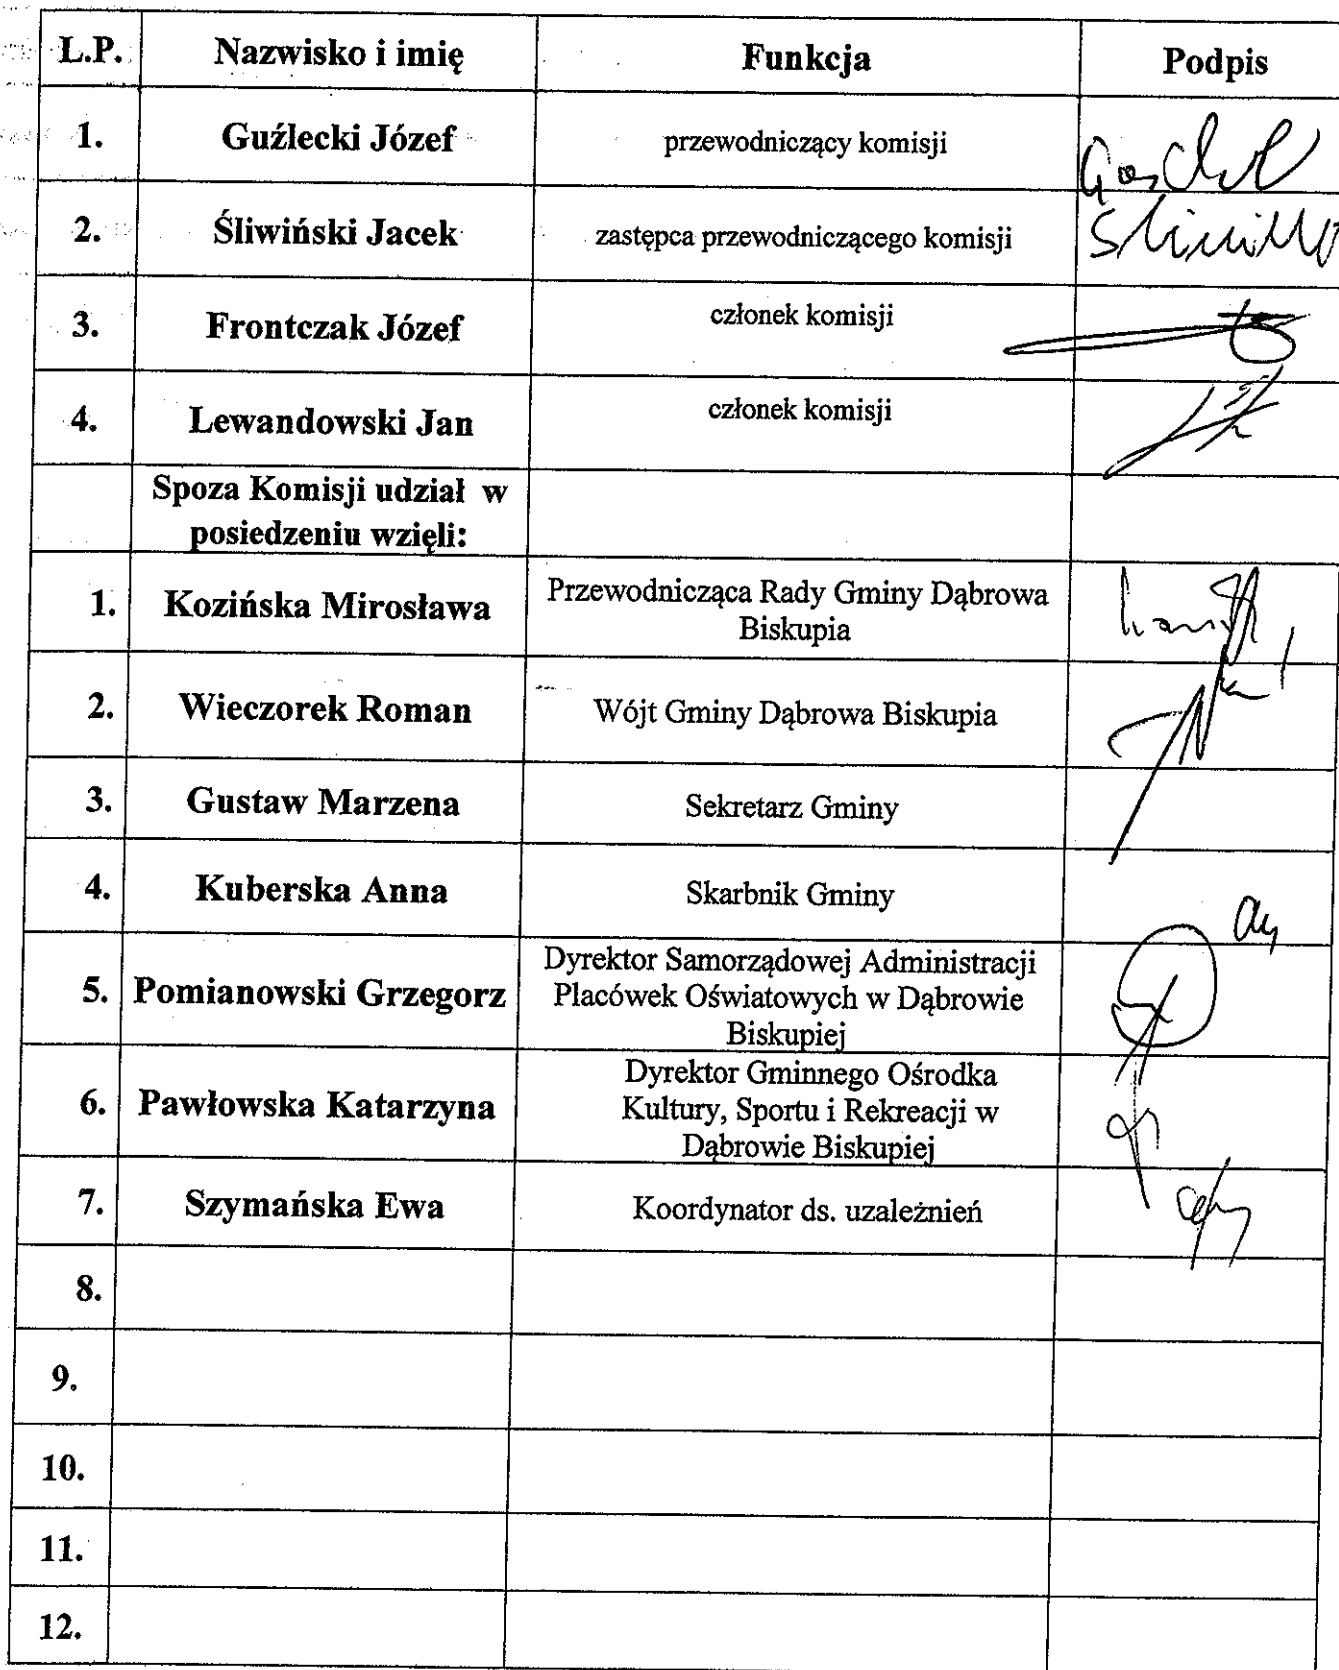 L.P. Nazwisko i imię Funkcja Podpis
1. Guźlecki Józef przewodniczący komisji
2. Śliwiński Jacek zastępca przewodniczącego komisji
3. Frontczak Józef członek komisji
4. Lewandowski Jan członek komisji
Spoza Komisji udział w
posiedzeniu wzięli:
1. Kozińska Mirosława Przewodnicząca Rady Gminy Dąbrowa
Biskupia
2. Wieczorek Roman Wójt Gminy Dąbrowa Biskupia
3. Gustaw Marzena Sekretarz Gminy
4. Kuberska Anna Skarbnik Gminy
5. Pomianowski Grzegorz Dyrektor Samorządowej Administracji
Placówek Oświatowych w Dąbrowie
Biskupiej
6. Pawłowska Katarzyna Dyrektor Gminnego Ośrodka
Kultury, Sportu i Rekreacji w
Dąbrowie Biskupiej
7. Szymańska Ewa Koordynator ds. uzależnień
8.
9.
10.
11.
12.